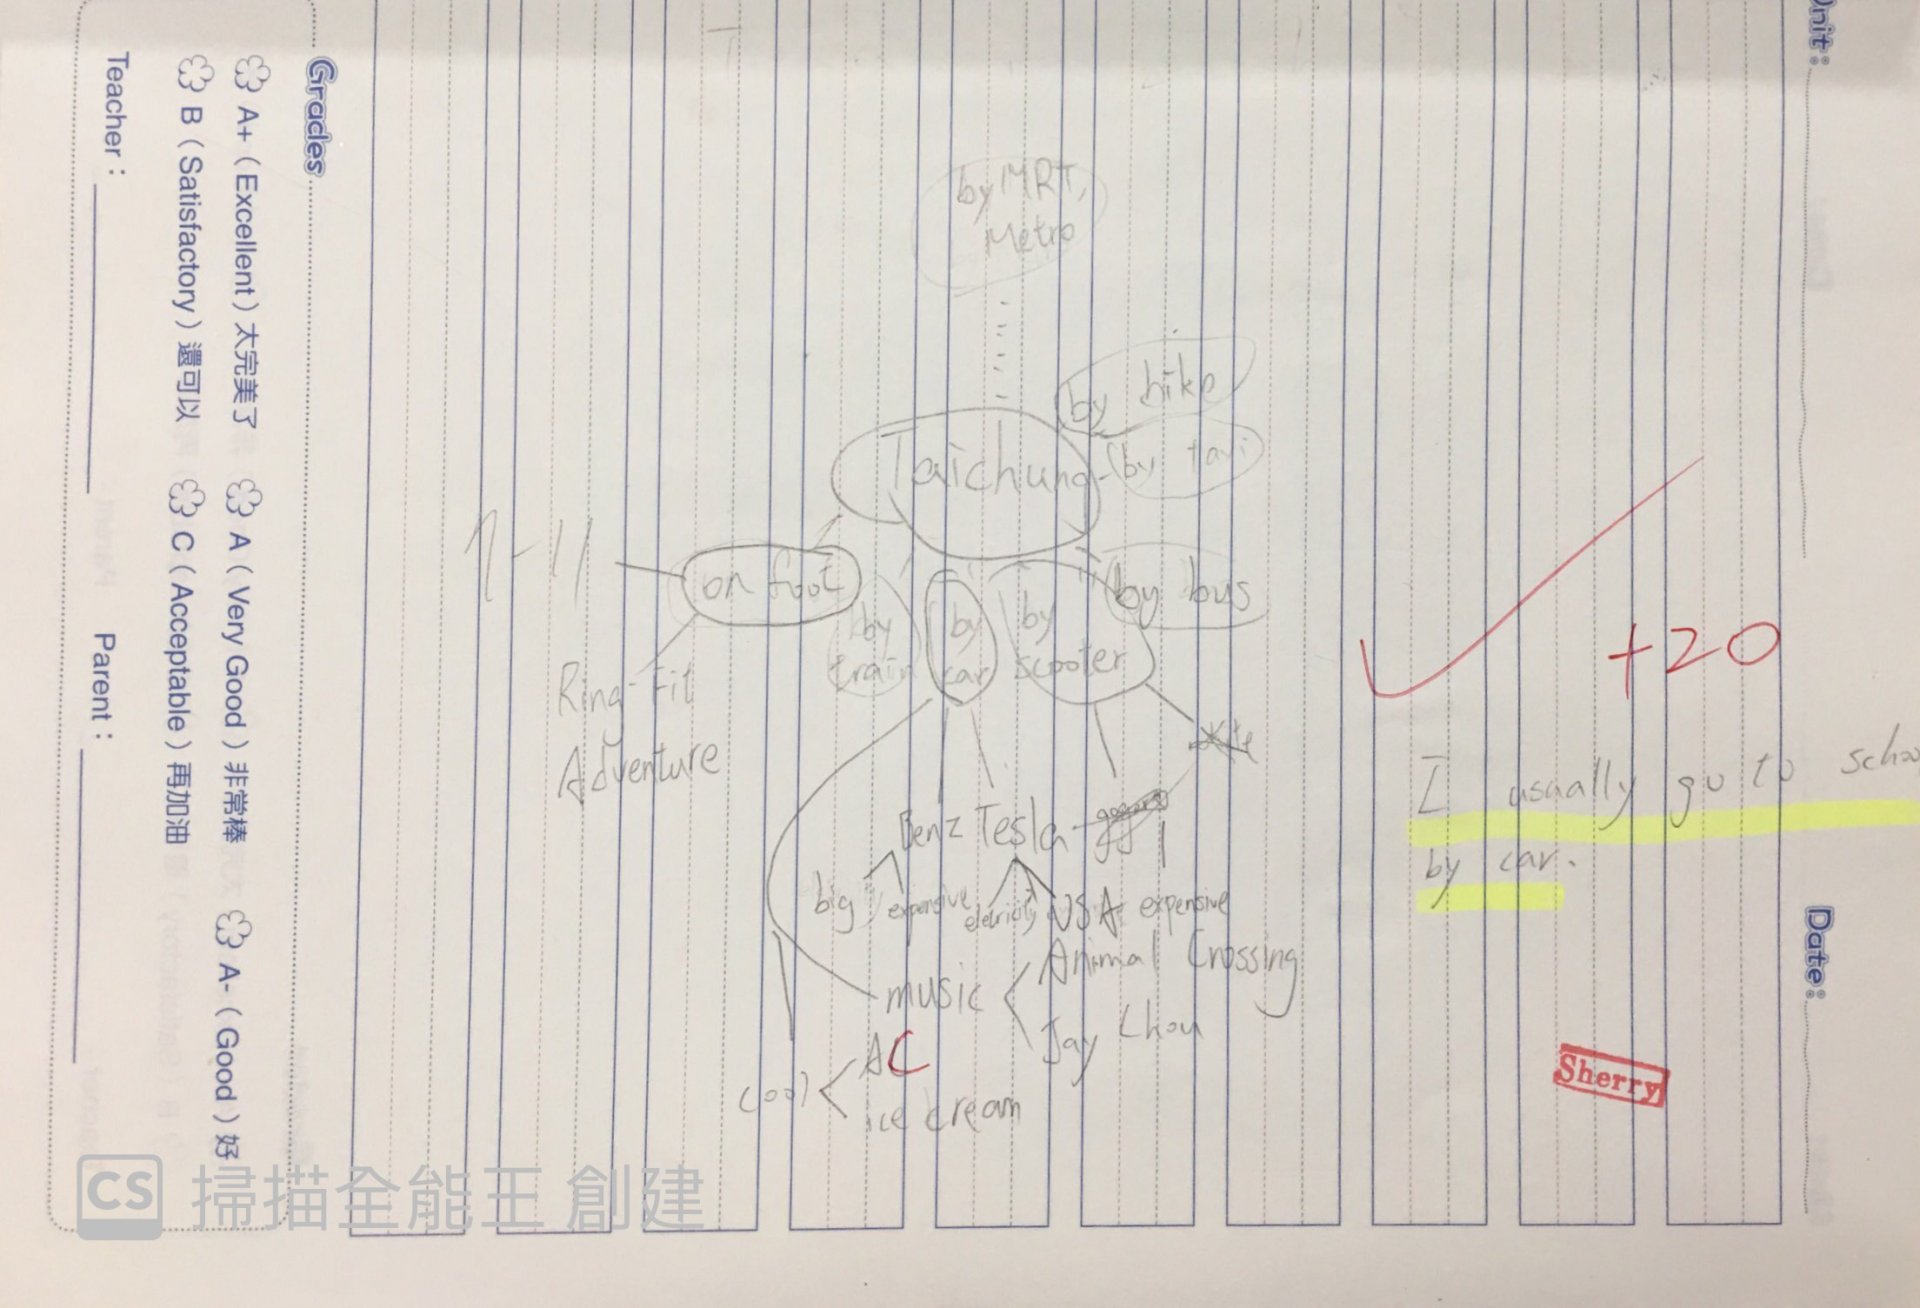 Unit:
Date:
by MRT,
Metro
by bike
Taichung
by taxi
7-11
on foot
by bus
by
train
by
car
by
scooter
Ring-Fit
Adventure
Benz Tesla
big expensive USA expensive
music
Animal Crossing
Jay Chou
AC
cool
ice cream
+20
I usually go to schoo
by car.
Sherry
Grades
A+ (Excellent) 太完美了 A (Very Good) 非常棒 A- (Good) 好
B (Satisfactory) 還可以 C (Acceptable) 再加油
Teacher: Parent:
CS 掃描全能王 創建